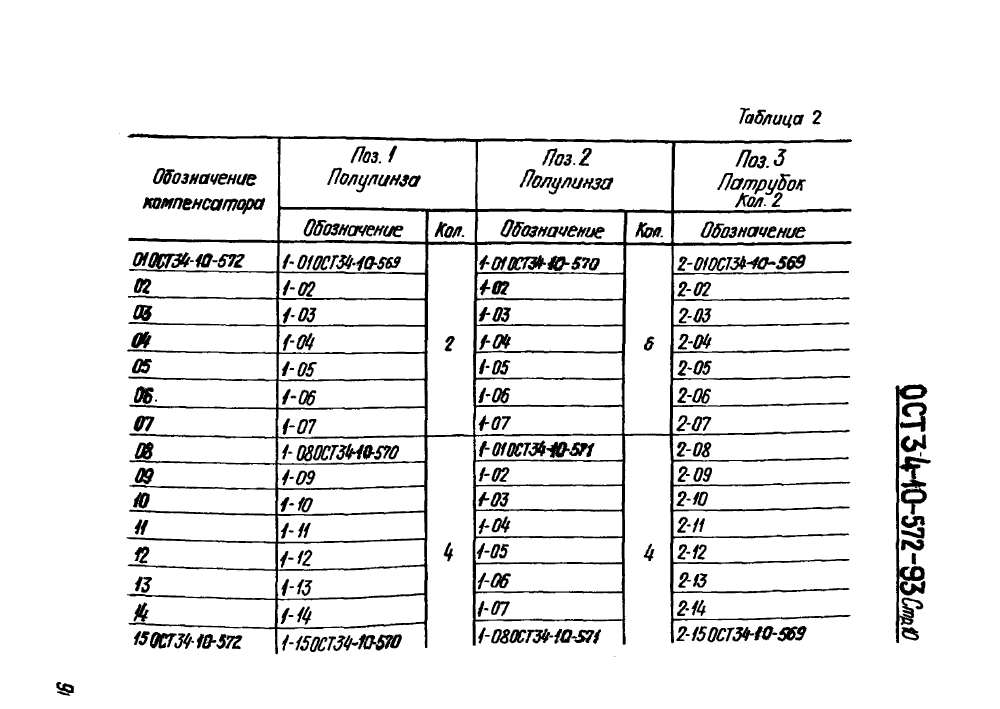 Таблица 2
Обозначение компенсатора | Поз. 1 Полулинза | Поз. 2 Полулинза | Поз. 3 Патрубок Кол. 2
Обозначение | Кол. | Обозначение | Кол. | Обозначение
01 ОСТ34-10-572 | 1-01 ОСТ34-10-569 | 2 | 1-01 ОСТ34-10-570 | 6 | 2-01 ОСТ34-10-569
02 | 1-02 | 1-02 | 2-02
03 | 1-03 | 1-03 | 2-03
04 | 1-04 | 1-04 | 2-04
05 | 1-05 | 1-05 | 2-05
06. | 1-06 | 1-06 | 2-06
07 | 1-07 | 1-07 | 2-07
08 | 1-08 ОСТ34-10-570 | 4 | 1-01 ОСТ34-10-571 | 4 | 2-08
09 | 1-09 | 1-02 | 2-09
10 | 1-10 | 1-03 | 2-10
11 | 1-11 | 1-04 | 2-11
12 | 1-12 | 1-05 | 2-12
13 | 1-13 | 1-06 | 2-13
14 | 1-14 | 1-07 | 2-14
15 ОСТ34-10-572 | 1-15 ОСТ34-10-570 | 1-08 ОСТ34-10-571 | 2-15 ОСТ34-10-569
ОСТ 34-10-572-93 Стр. 10